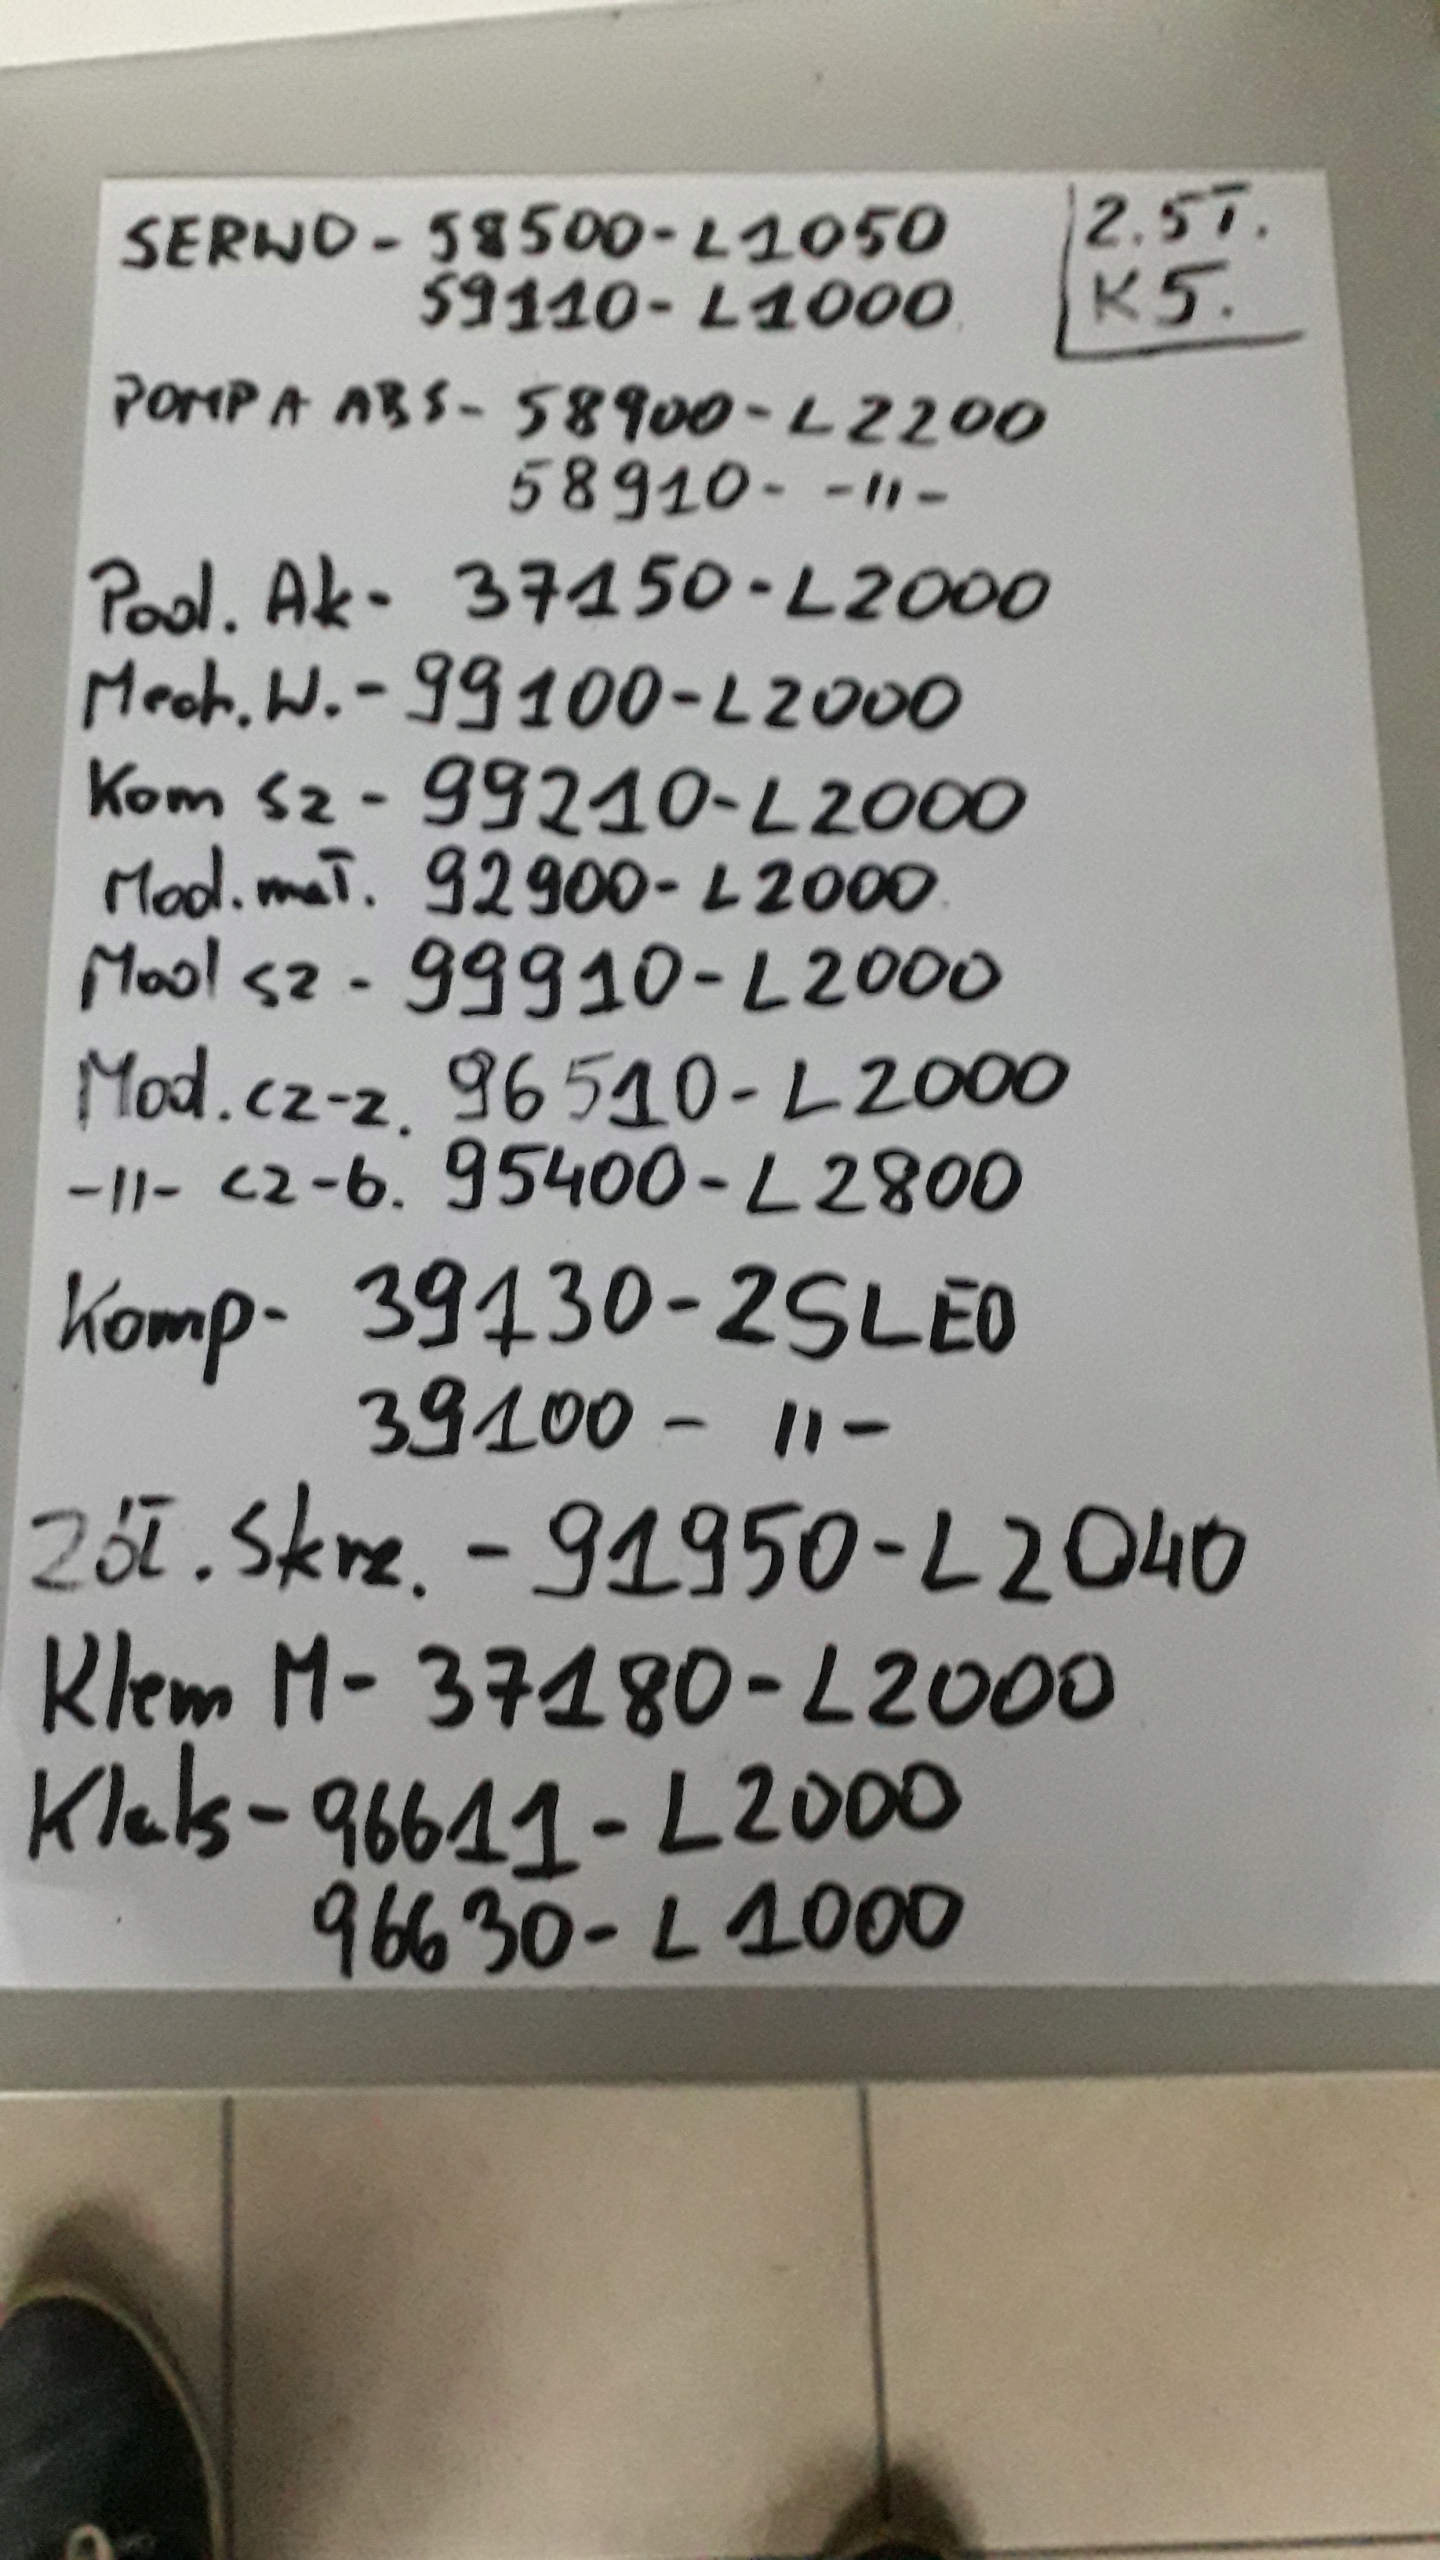 SERWO - 58500-L1050
59110-L1000
2.5T.
K5.
POMPA ABS- 58900-L2200
58910- -11-
Pod. Ak- 37150-L2000
Mech.W.- 99100-L2000
Kom sz - 99210-L2000
Mod.maT. 92900-L2000
Mod sz - 99910-L2000
Mod.cz-z. 96510-L2000
-11- cz-b. 95400-L2800
Komp- 39130-2SLE0
39100 - 11-
Zół. Skrz. - 91950-L2040
Klem M- 37180-L2000
Klaks- 96611-L2000
96630-L1000